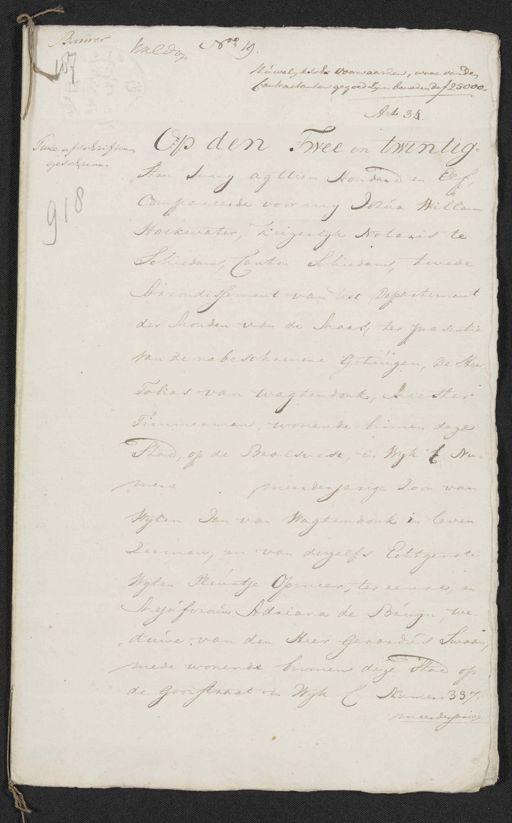 N.º 19.
187
Huwelijksche voorwaarden, waar van de
Contractanten gegoed zijn beneden de ƒ 25000.
Art. 34.
Twee afschriften
918
Op den Twee en twintig-
sten Juny agttien Honderd en Elf,
Compareerde voor my Josua Willem
Hoekwater, Keizerlyk Notaris te
Schiedam, Canton Schiedam, tweede
Arrondissement van het Departement
der Monden van de Maas, ter presentie
van de nabeschrevene Getuigen, De Heer
Tobias van Waghtendonk, Meester
Timmerman, wonende binnen deze
Stad, op de in Wyk C Nu-
mero meerderjarige Zoon van
Wylen Jan van Waghtendonk in leven
Zeeman, en van deszelfs Echtgenote
Wylen Opmeer, ter eenre, en
Mejufvrouw Adriana de Bruyn, we-
duwe van den Heer Gerardus Swaan,
mede wonende binnen deze Stad op
de Gorstraat in Wyk C Numero 337.
meerderjarige